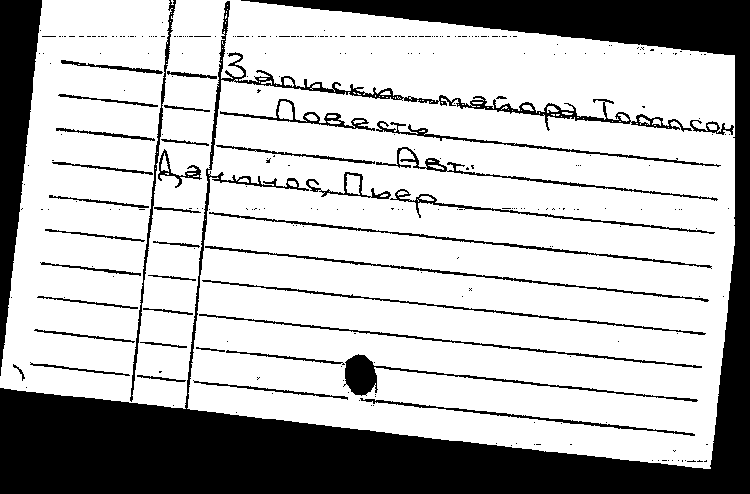 Записки майора Томпсон
Повесть
Авт.:
Данинос, Пьер